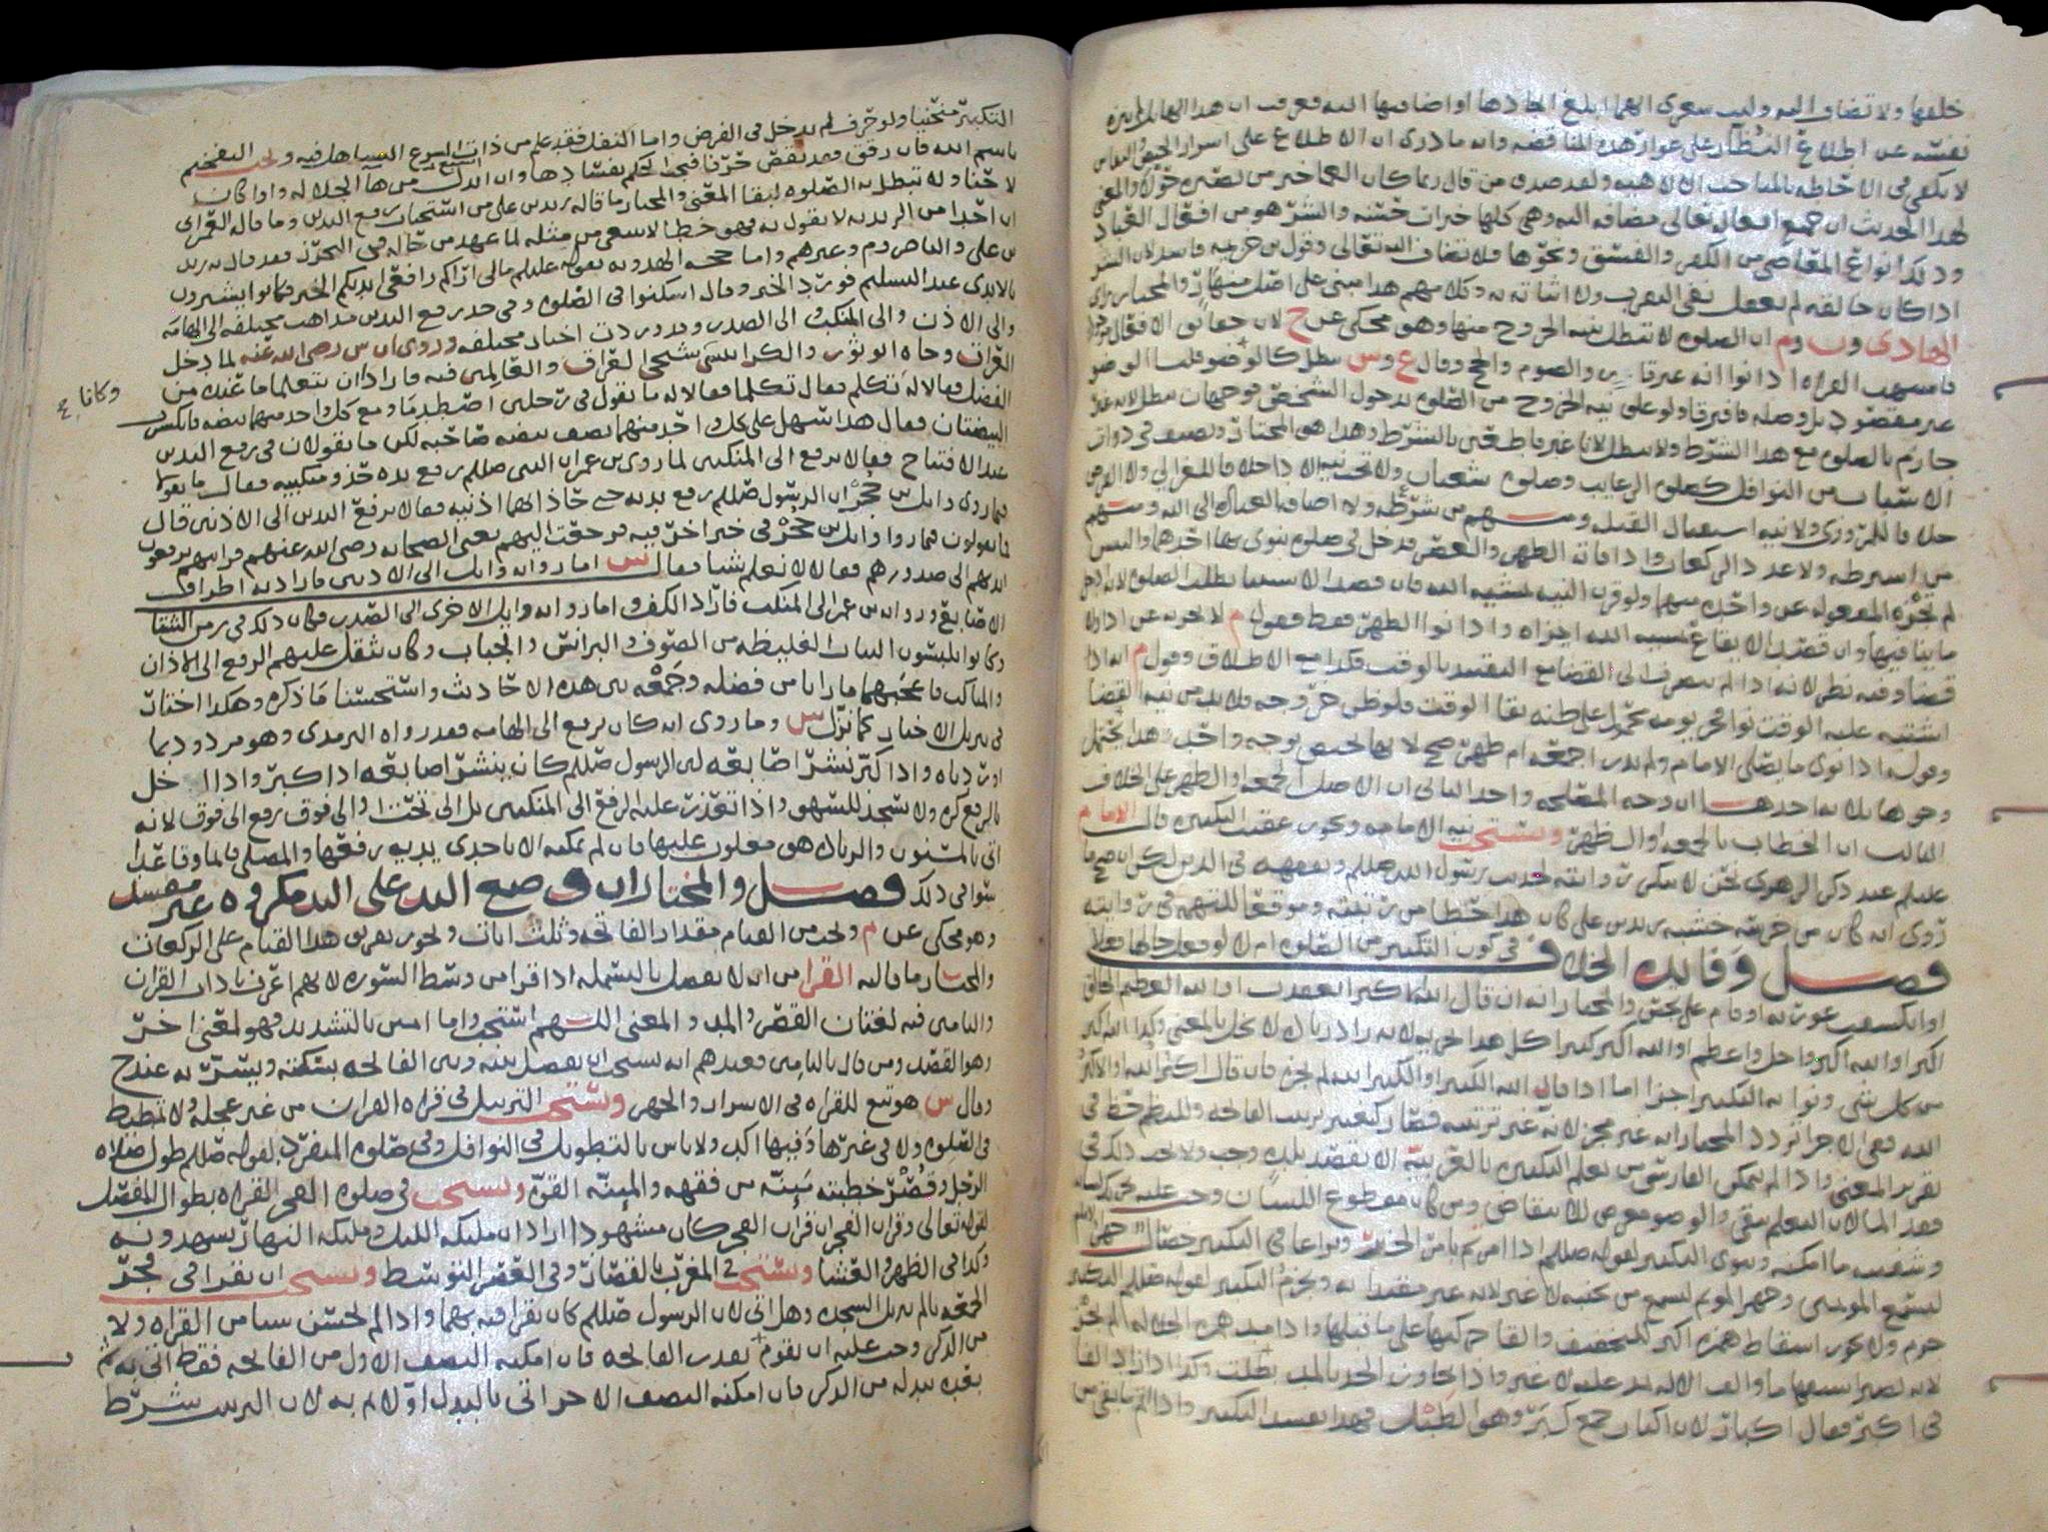 خلقها ولا تضاف اليه وليت سعرى ايهما ابلغ ايجادها او اضافتها اليه فعرفت ان هذا
نفسه عن اطلاع النظار على عوار هذه المناقضه وانه ما درى ان الاطلاع على اسرار
لا يكفى فى الاحاطه بالمباحث الالاهيه ولقد صدق من قال ربما كان العما خير من بصيره حولا والمعنى
لهذا الحديث ان جميع افعاله تعالى مضافه اليه وهى كلها خيرات حسنه والشر هو من افعال العباد
وذلك انواع المعاصى من الكفر والفسق ونحوها فلا تضاف اليه تعالى وقول بن خزيمه فاسد لان الشر
اذا كان خالقه لم يعقل نفى التقرب ولا اثباته به وكلامهم هذا مبنى على اصل منهار والمختار
الهادى و ن و م ان الصلوه لا تبطل بنيه الخروج منها وهو محكى عن ح لان
القراه اذا نوا انه غير قارى والصوم والحج وقال ع و س تبطل كالوضو قلنا الوضو
غير مقصود بل وصله فافترقا ولو علق نيه الخروج من الصلوه بدخول الشخص فوجهان تبطل لانه غير
جازم بالصلوه مع هذا الشرط ولا تبطل لانا غير قاطعين بالشرط وهذا هو المختار ونصف فى ذوات
الاسباب من النوافل كصلوه الرغايب وصلوه شعبان ولا تجب نيه الاداء خلافا للغزالى ولا الفرض
خلافا للمروزى ولا نيه استقبال القبله ومنهم من شرطه ولا اضافه العباده الى الله ومنهم
من اشترطه ولا عدد الركعات واذا فاته الظهر والعصر فدخل فى صلوه ينوى بها احدهما والتبس
لم تجزه المفعوله عن واحده منهما ولو قرن النيه بمشيه الله فان قصد الاستثنا بطلت الصلوه
ما ينافيها وان قصد الايقاع بمشيه الله اجزاه واذا نوا الظهر فقط فقول م لا يجزيه عن ادا ولا
قضا وفيه نظر لانه اذا لم يصرف الى القضا مع التقييد بالوقت فكذا مع الاطلاق وقول م انه اذا
اشتبه عليه الوقت نوا فجر يومه محمول على ظنه بقا الوقت فلو ظن خروجه فلا بد من نيه القضا
وقوله اذا نوى ما يصلى الامام ولم يدر اجمعه ام ظهر صح لانها يجمعهن بوجه واحد هذا يحتمل
وجوها ثلاثه احدها ان وجه المصلحه واحد الثانى ان الاصل الجمعه او الظهر على الخلاف
الثالث ان الخطاب بالجمعه او الظهر ويستحب نيه الامامه ويجوز عقيب التكبيره قال الامام
عليلم عند ذكر الزهرى نحن لا ننكر روايته لحديث رسول الله صللم وتفقهه فى الدين لكن ان صح ما
روى انه كان من حرسه خشبه زيد بن على كان هذا خطا من ثقته وموقعا للتهمه فى روايته
فصل وفايده الخلاف فى كون التكبير من الصلوه ام لا لو فعل حالها
او انكشفت عورته او قام على نجس والمختار انه ان قال الله اكبر انعقدت او الله العظيم الخالق
اكبر او الله اكبر واجل واعظم او الله اكبر كبيرا كل هذا اجزا لانه زاد زياده لا تخل بالمعنى وكذا الله اكبر
من كل شى ونوا به التكبير اجزا اما اذا قال الله الكبير او الكبير الله لم يجزه فان قال اكبر الله والاكبر
الله ففى الاجزا تردد المختار انه غير مجز لانه غير ترتيبه فصار كتغيير ترتيب الفاتحه وللنظم حظ فى
تقرير المعنى واذا لم يتمكن الفارسى من تعلم التكبير بالعربيه الا بقصد بلده وجب ولا يجب ذلك فى
فقد الما لان التعلم يبقى والوضو معرض للانتقاض ومن كان مقطوع اللسان وجب عليه تحريك لسانه
وشفتيه ما امكنه وينوى التكبير لقوله صللم اذا امرتم بامر الخبر ونوا عافى التكبير خصال جهر الامام
ليسمع المومنين وجهر الموتم ليسمع من بجنبه لا غير لانه غير مقتدا به ويجزم التكبير لقوله صللم التكبير
جزم ولا يجوز اسقاط همزه اكبر للتخفيف والقا حركتها على ما قبلها واذا مد همزه الجلاله لم يجز
لانه يصير استفهاما والف الاله مد عليه لا غير واذا تجاوز الحد بالمد بطلت وكذا اذا زاد الفا
فى اكبر فقال اكبار لان اكبار جمع كبر وهو الطبل فهذا يفسد التكبير واذا لم يبقى من
التكبير منحنيا ولو حرف لم يدخل فى الفرض واما النفل فقد علم من ذات الشرع التساهل فيه ولحب التفخيم
باسم الله فان رقق فقد نقص حرفا فيجب الحكم بفسادها وان ابدل من ها الجلاله واوا كان
لاحنا ولا تبطل به الصلوه لبقا المعنى والمختار ما قاله زيد بن على من استحباب رفع اليدين وما قاله العمرانى
ان احدا من الزيديه لا يقول به فهو خطا لاسعى من مثله لما عهد من حاله فى التحرز فقد قال به زيد
بن على والناصر و م وغيرهم واما حجه الهدويه بقوله عليلم مالى اراكم رافعى ايديكم الخبر فكانوا يشيرون
بالايدى عند التسليم فورد الخبر وقال اسكنوا فى الصلوه وفى حد رفع اليدين مذاهب مختلفه الى الهامه
والى الاذن والى المنكب والى الصدر وقد وردت اخبار مختلفه وروى ان س رضى الله عنه لما دخل
العراق وجاه ابو ثور والكرابيسى شيخى العراق والعالمى فيه فارادا ان يتعلما ما عنده من
وكانا ح
الفضل فقالا له تكلم فقال تكلما فقالا له ما تقول فى رجلين اصطدما ومع كل واحد منهما بيضه فانكسرت
البيضتان فقال هذا سهل على كل واحد منهما نصف بيضه صاحبه لكن ما تقولان فى رفع اليدين
عند الافتتاح فقالا يرفع الى المنكبين لما روى بن عمر ان النبى صللم رفع يده حذو منكبيه فقال ما تقولا
فيما روى وايل بن حجر ان الرسول صللم رفع يديه حتى حاذا بهما اذنيه فقالا يرفع اليدين الى الاذنين قال
فما تقولون فيما روا وايل بن حجر فى خبر اخر فيه ثم رجعت اليهم يعنى الصحابه رضى الله عنهم فراهم يرفعون
ايديهم الى صدورهم فقالا لا نعلم شيا فقال س اما روايه وايل الى الاذنين فاراد به اطراف
الاصابع وروايه بن عمر الى المنكب فاراد الكف واما روايه وايل الاخرى الى الصدر فكان ذلك فى زمن الشتا
وكانوا يلبسون الثياب الغليظه من الصوف والبرانس والجباب وكان يثقل عليهم الرفع الى الاذان
والمناكب فاعجبهما ما رايا من فضله وجمعه بين هذه الاحاديث واستحسنا ما ذكره وهكذا اختار
فى تنزيل الاخبار كما نزل س وما روى انه كان يرفع الى الهامه فقد رواه الترمذى وهو مردود بما
اوردناه واذا كبر نشر اصابعه لان الرسول صللم كان ينشر اصابعه اذا كبر واذا اخل
بالرفع كره ولا يسجد للسهو واذا تعذر عليه الرفع الى المنكبين بل الى تحت او الى فوق رفع الى فوق لانه
اتى بالمسنون والزياده هو مغلوب عليها فان لم يمكنه الا باحدى يديه رفعها والمصلى قايما وقاعدا
سوا فى ذلك فصل والمختار ان وضع اليد على اليد مكروه غير مفسد
وهو محكى عن م ولحب من القيام مقدار الفاتحه وثلث ايات ويجوز تفريق هذا القيام على الركعات
والمختار ما قاله القرا من انه لا يفصل بالبسمله اذا قرا من وسط السوره لانهم اعرف باداب القران
والتامين فيه لغتان القصر والمد والمعنى اللهم استجب واما امين بالتشديد فهو لمعنى اخر
وهو القصد ومن قال بالتامين فعندهم انه يستحب ان يفصل بينه وبين الفاتحه بسكته ويسر به عند ح
وقال س هو تبع للقراه فى الاسرار والجهر ويستحب الترتيل فى قراه القران من غير عجله ولا تمطيط
فى الصلوه ولا فى غيرها وفيها اكد ولا باس بالتطويل فى النوافل وفى صلوه المنفرد لقوله صللم طول صلاه
الرجل وقصر خطبته مئنه من فقهه والمئنه القوه ويستحب فى صلوه الفجر القراه بطوال المفصل
لقوله تعالى وقران الفجر ان قران الفجر كان مشهودا اراد ان مليكه الليل ومليكه النهار يشهدونه
وكذا فى الظهر والعشا ويستحب فى المغرب بالقصار وفى العصر التوسط ويستحب ان يقرا فى فجر
الجمعه بالم تنزيل السجده وهل اتى لان الرسول صللم كان يقرا فيه بهما واذا لم يحسن سيا من القراه ولا
من الذكر وجب عليه ان يقوم بقدر الفاتحه فان امكنه النصف الاول من الفاتحه فقط اتى به ثم
بقدر بدله من الذكر فان امكنه النصف الاخر اتى بالبدل اولا ثم به لان الترتيب شرط